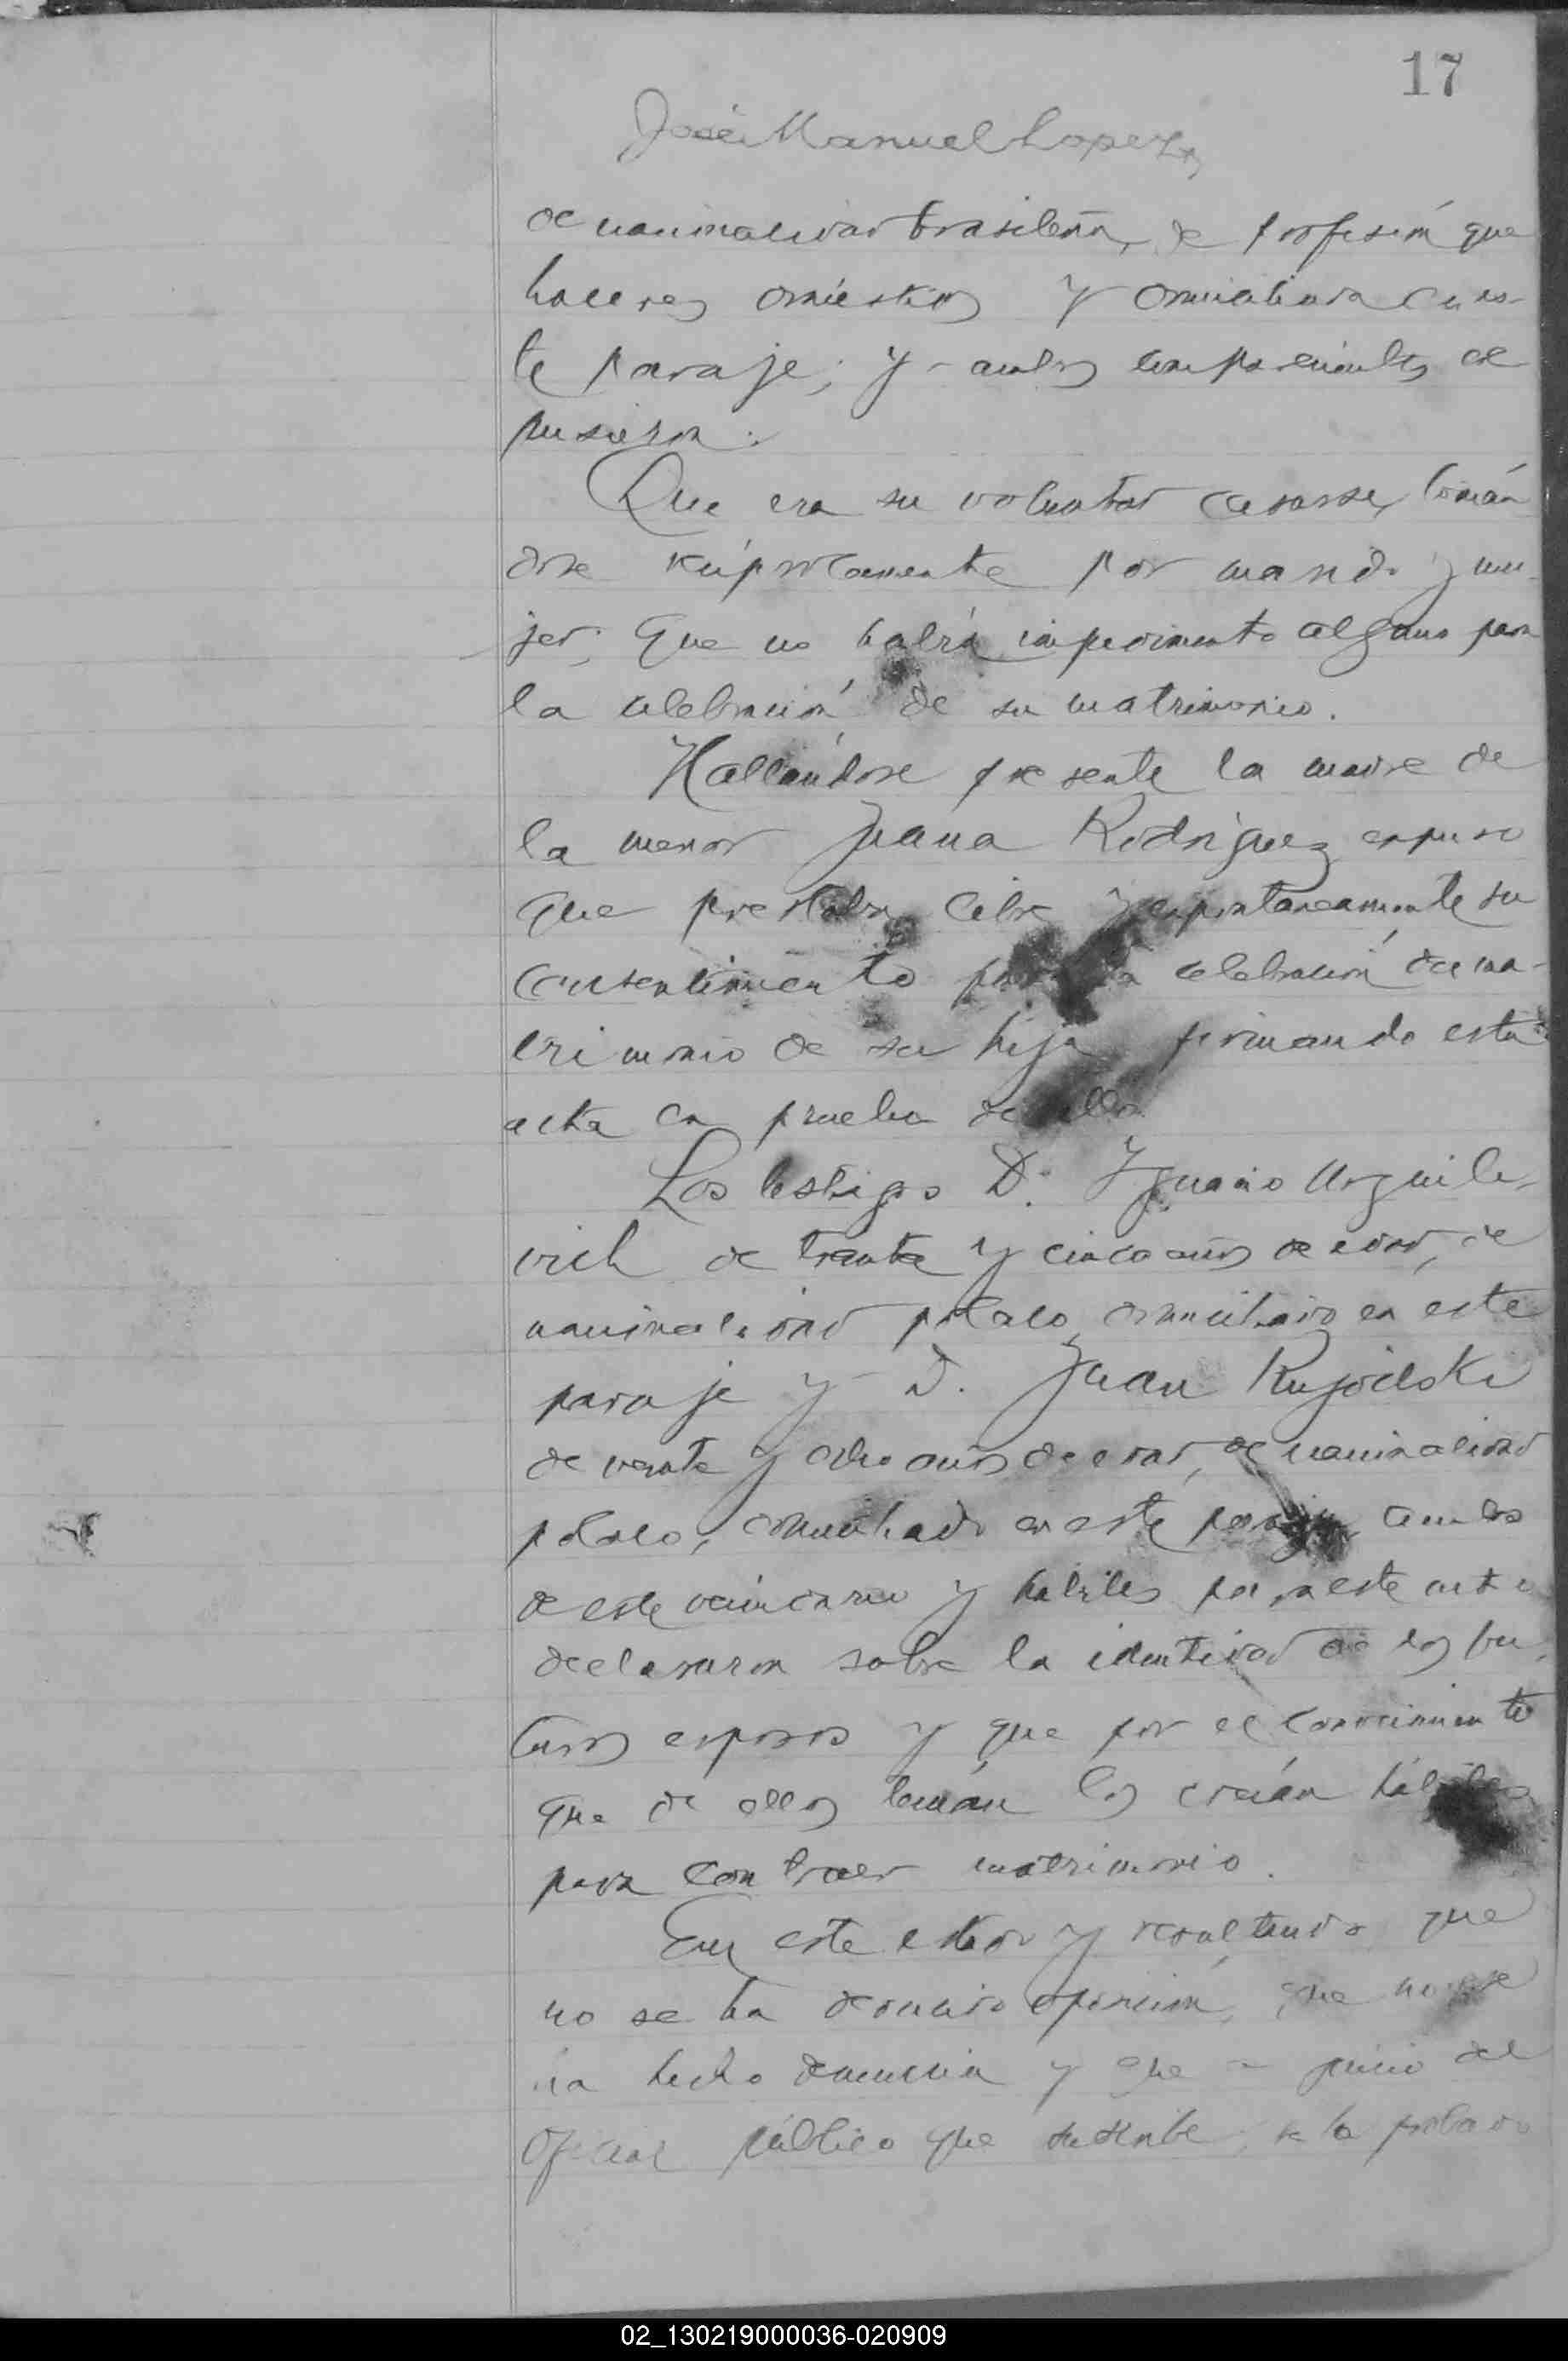 17
José Manuel Lopez
de nacionalidad brasileña, de profesión que
haceres domésticos y domiciliada en es-
te paraje; y ambos comparecientes ex
pusieron:
Que era su voluntad casarse, tomán
dose recíprocamente por marido y mu-
jer; Que no había impedimento alguno para
la celebración de su matrimonio.
Hallándose presente la madre de
la menor Juana Rodríguez expuso
que prestaba libre y espontaneamente su
consentimiento para la celebración del ma-
trimonio de su hija firmando esta
acta en prueba de ello
Los testigos D. Ygnacio Urguile-
vich de treinta y cinco años de edad, de
nacionalidad polaco, domiciliado en este
paraje y D. Juan
de veinte y ocho años de edad, de nacionalidad
polaco, domiciliado en este paraje, ambos
de este vecindario y hábiles para este acto
declararon sobre la identidad de los fu-
turos esposos y que por el conocimiento
que de ellos tenían los creían hábiles
para contraer matrimonio.
En este estado y resultando que
no se ha deducido oposición, que no se
ha hecho denuncia y que a juicio del
Oficial público que suscribe, se ha probado
02_130219000036-020909